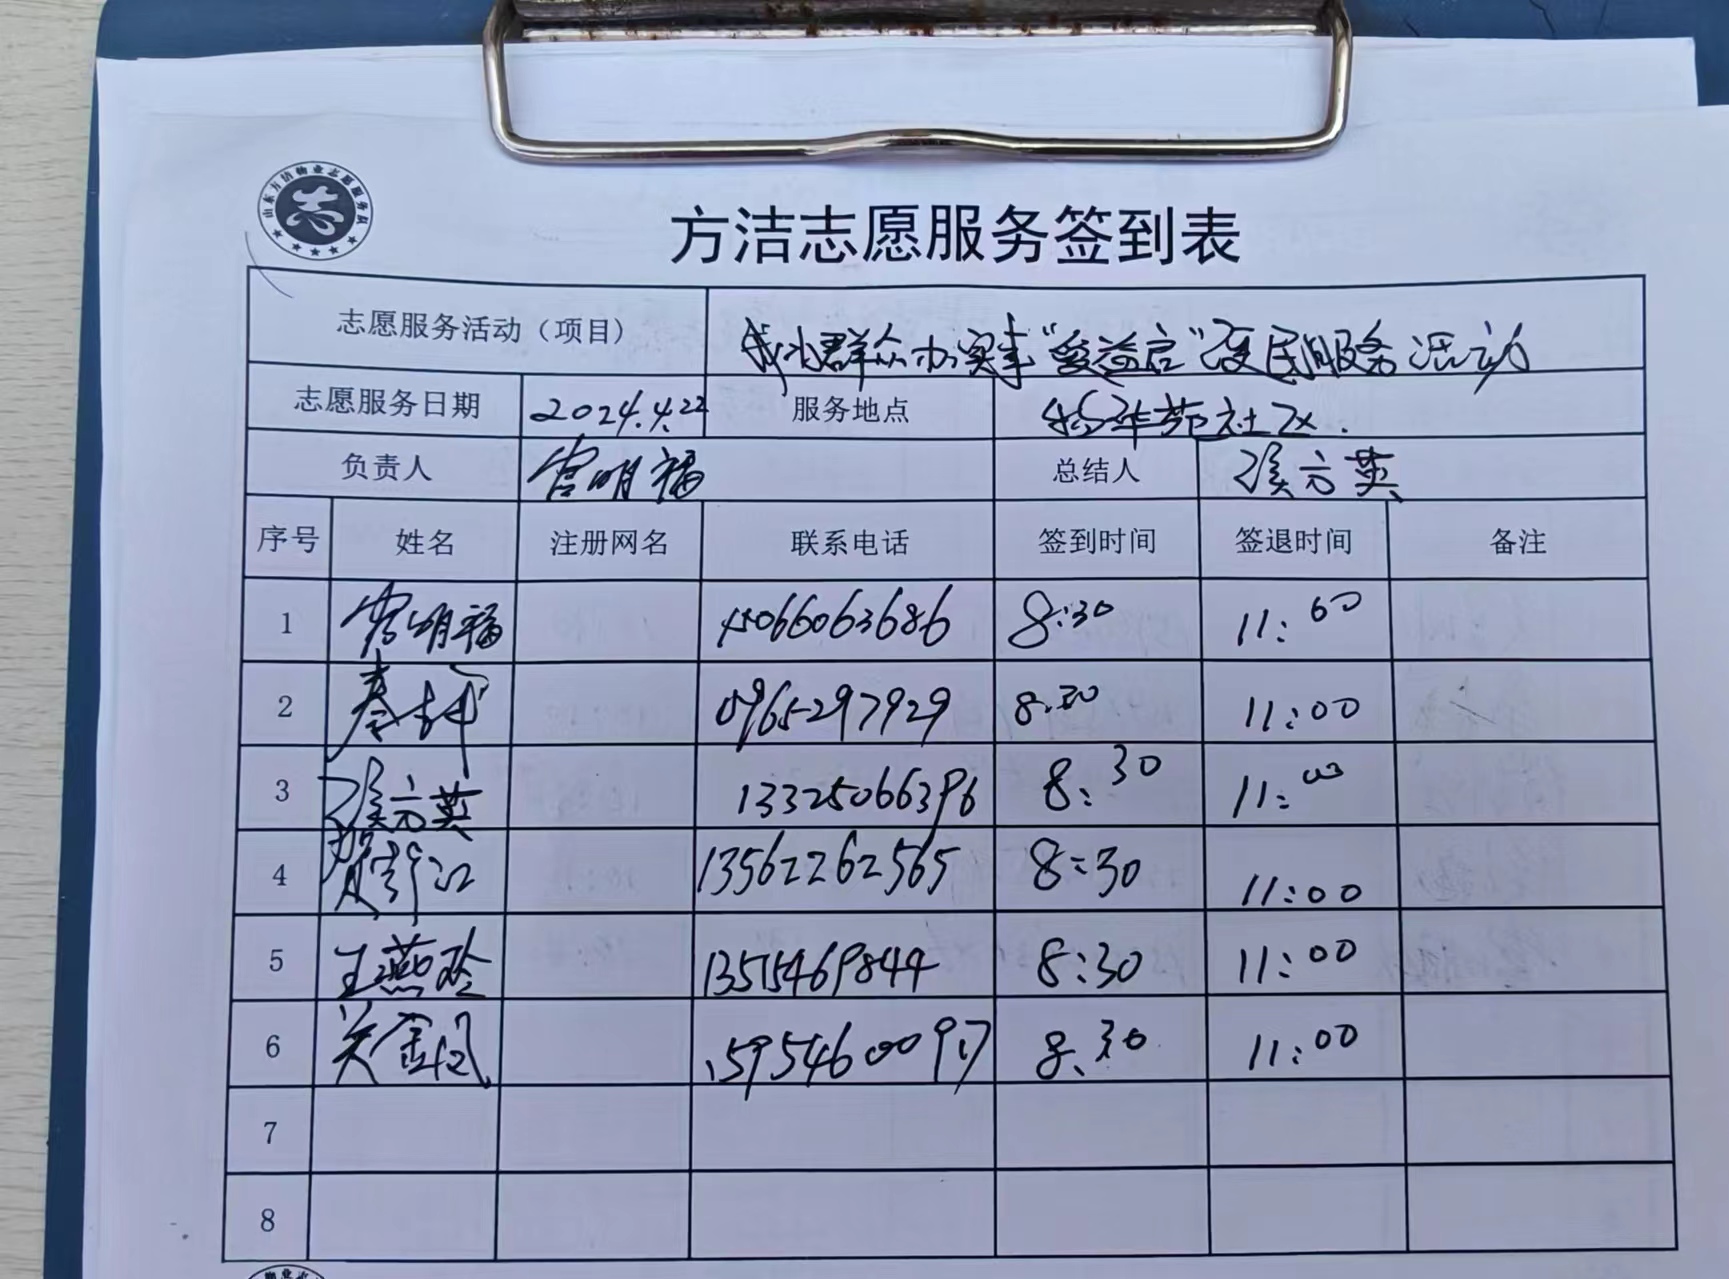 山东方洁物业志愿服务队
志
方洁志愿服务签到表
志愿服务活动（项目） 我为群众办实事“爱益启”便民服务活动
志愿服务日期 2024.4.22 服务地点 华苑社区.
负责人 宫明福 总结人 张方英
序号 姓名 注册网名 联系电话 签到时间 签退时间 备注
1 宫明福 15066063686 8:30 11:00
2 8:30 11:00
3 张方英 13325066396 8:30 11:00
4 13562262565 8:30 11:00
5 王燕玲 13515469844 8:30 11:00
6 关金凤 15954600917 8:30 11:00
7
8